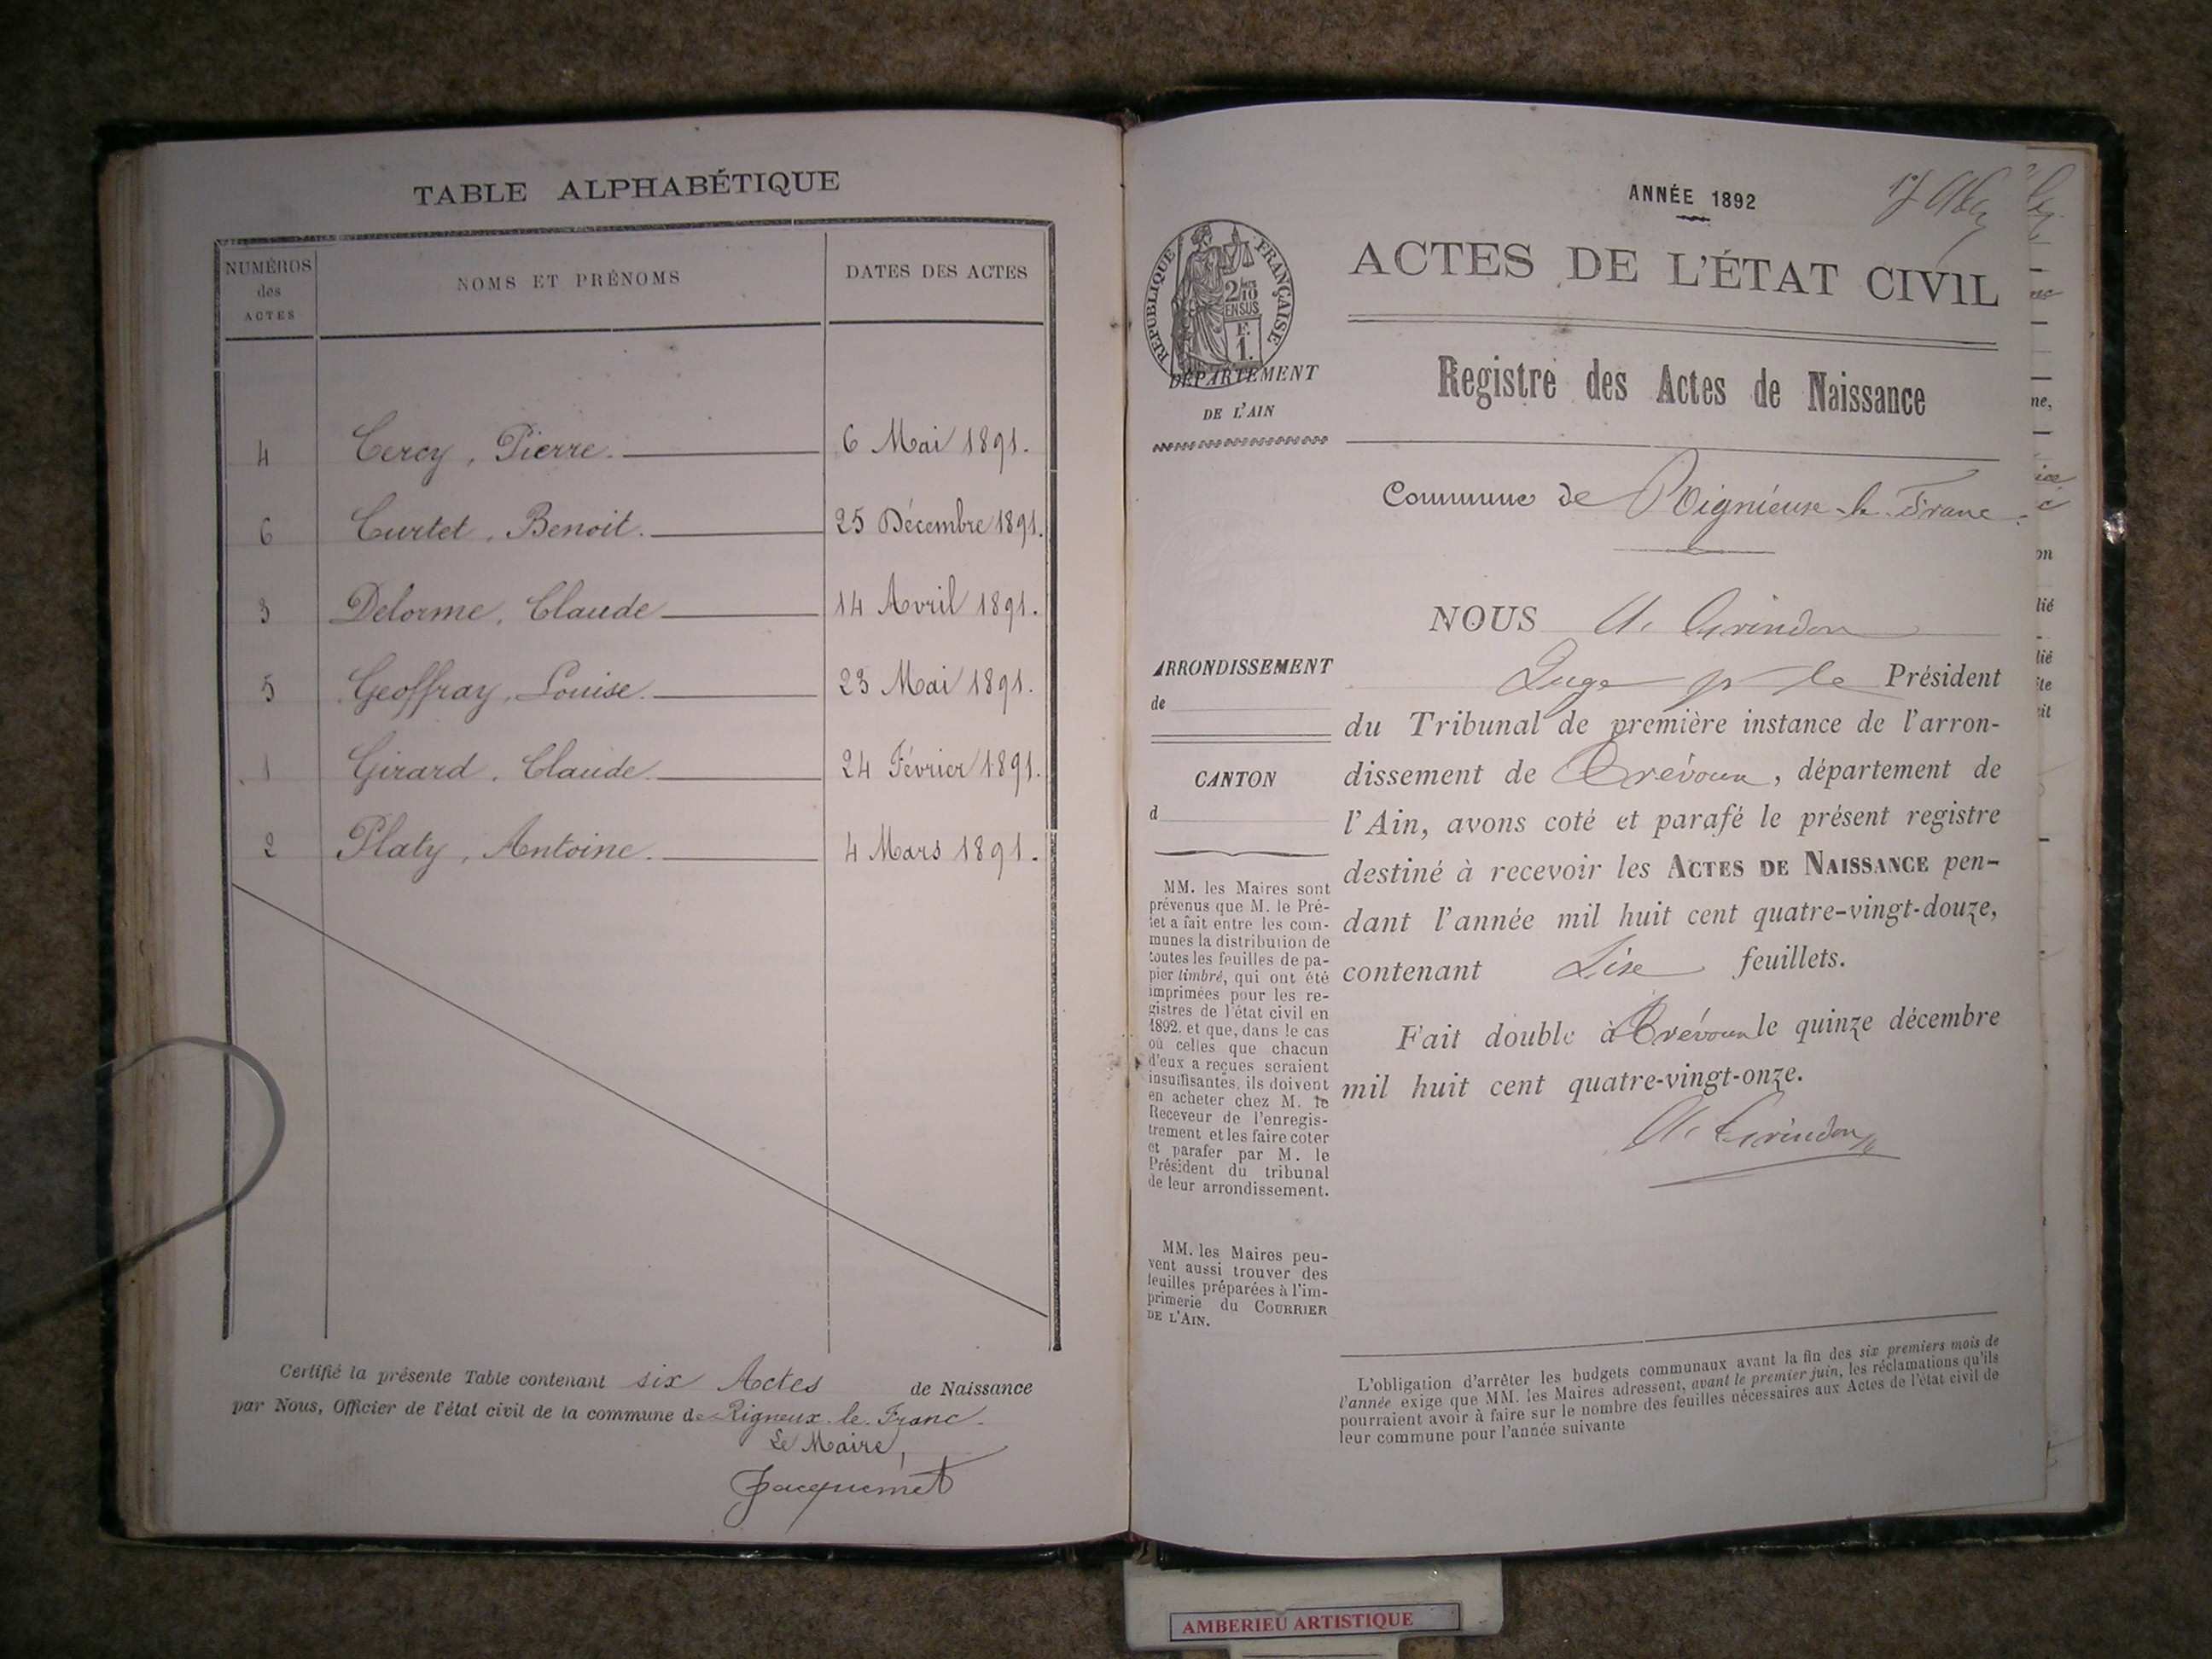 TABLE ALPHABÉTIQUE
NUMÉROS
des
ACTES
NOMS ET PRÉNOMS
DATES DES ACTES
4 Cercy, Pierre. 6 Mai 1891.
6 Curtet, Benoit. 25 Décembre 1891.
3 Delorme, Claude 14 Avril 1891.
5 Geoffray, Louise. 23 Mai 1891.
1 Girard, Claude. 24 Février 1891.
2 Platy, Antoine. 4 Mars 1891.
Certifié la présente Table contenant six Actes de Naissance
par Nous, Officier de l'état civil de la commune de Rigneux-le-Franc.
Le Maire,
Jacquemet
ANNÉE 1892
RÉPUBLIQUE FRANÇAISE
2/10
EN SUS
F.
1.
ACTES DE L'ÉTAT CIVIL
DÉPARTEMENT
DE L'AIN
Registre des Actes de Naissance
Commune de Rignieux-le-Franc.
NOUS A. Grindon
Juge pr le Président
du Tribunal de première instance de l'arron-
dissement de Trévoux, département de
l'Ain, avons coté et parafé le présent registre
destiné à recevoir les ACTES DE NAISSANCE pen-
dant l'année mil huit cent quatre-vingt-douze,
contenant feuillets.
Fait double à Trévoux le quinze décembre
mil huit cent quatre-vingt-onze.
A. Grindon
ARRONDISSEMENT
de
CANTON
d
MM. les Maires sont
prévenus que M. le Pré-
fet a fait entre les com-
munes la distribution de
toutes les feuilles de pa-
pier timbré, qui ont été
imprimées pour les re-
gistres de l'état civil en
1892, et que, dans le cas
où celles que chacun
d'eux a reçues seraient
insuffisantes, ils doivent
en acheter chez M. le
Receveur de l'enregis-
trement et les faire coter
et parafer par M. le
Président du tribunal
de leur arrondissement.
MM. les Maires peu-
vent aussi trouver des
feuilles préparées à l'im-
primerie du COURRIER
DE L'AIN.
L'obligation d'arrêter les budgets communaux avant la fin des six premiers mois de
l'année exige que MM. les Maires adressent, avant le premier juin, les réclamations qu'ils
pourraient avoir à faire sur le nombre des feuilles nécessaires aux Actes de l'état civil de
leur commune pour l'année suivante
AMBERIEU ARTISTIQUE